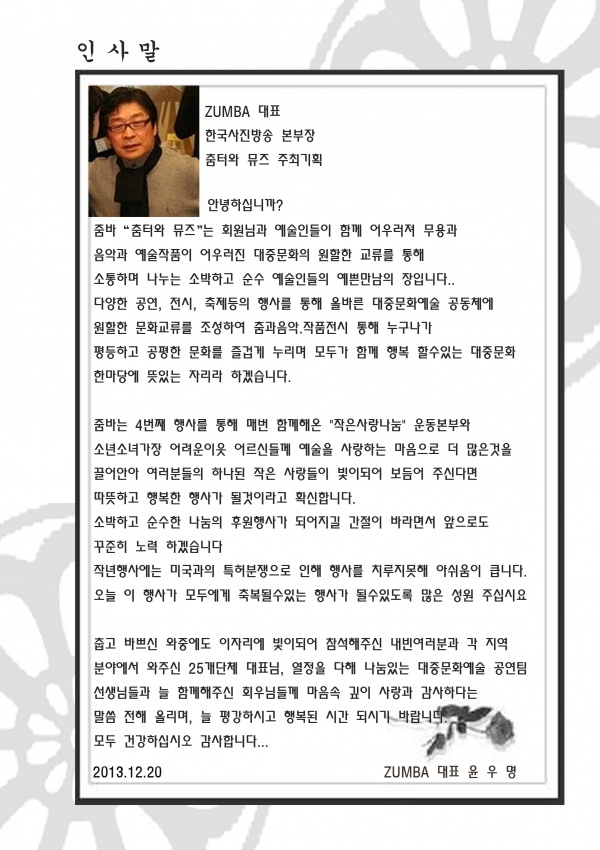 인 사 말
ZUMBA 대표
한국사진방송 본부장
춤터와 뮤즈 주최기획
안녕하십니까?
줌바 “춤터와 뮤즈”는 회원님과 예술인들이 함께 어우러져 무용과
음악과 예술작품이 어우러진 대중문화의 원할한 교류를 통해
소통하며 나누는 소박하고 순수 예술인들의 예쁜만남의 장입니다..
다양한 공연, 전시, 축제등의 행사를 통해 올바른 대중문화예술 공동체에
원할한 문화교류를 조성하여 춤과음악.작품전시 통해 누구나가
평등하고 공평한 문화를 즐겁게 누리며 모두가 함께 행복 할수있는 대중문화
한마당에 뜻있는 자리라 하겠습니다.
줌바는 4번째 행사를 통해 매번 함께해온 "작은사랑나눔" 운동본부와
소년소녀가장 어려운이웃 어르신들께 예술을 사랑하는 마음으로 더 많은것을
끌어안아 여러분들의 하나된 작은 사랑들이 빛이되어 보듬어 주신다면
따뜻하고 행복한 행사가 될것이라고 확신합니다.
소박하고 순수한 나눔의 후원행사가 되어지길 간절이 바라면서 앞으로도
꾸준히 노력 하겠습니다
작년행사에는 미국과의 특허분쟁으로 인해 행사를 치루지못해 아쉬움이 큽니다.
오늘 이 행사가 모두에게 축복될수있는 행사가 될수있도록 많은 성원 주십시요
춥고 바쁘신 와중에도 이자리에 빛이되어 참석해주신 내빈여러분과 각 지역
분야에서 와주신 25개단체 대표님, 열정을 다해 나눔있는 대중문화예술 공연팀
선생님들과 늘 함께해주신 회우님들께 마음속 깊이 사랑과 감사하다는
말씀 전해 올리며, 늘 평강하시고 행복된 시간 되시기 바랍니다.
모두 건강하십시오 감사합니다...
2013.12.20 ZUMBA 대표 윤 우 명